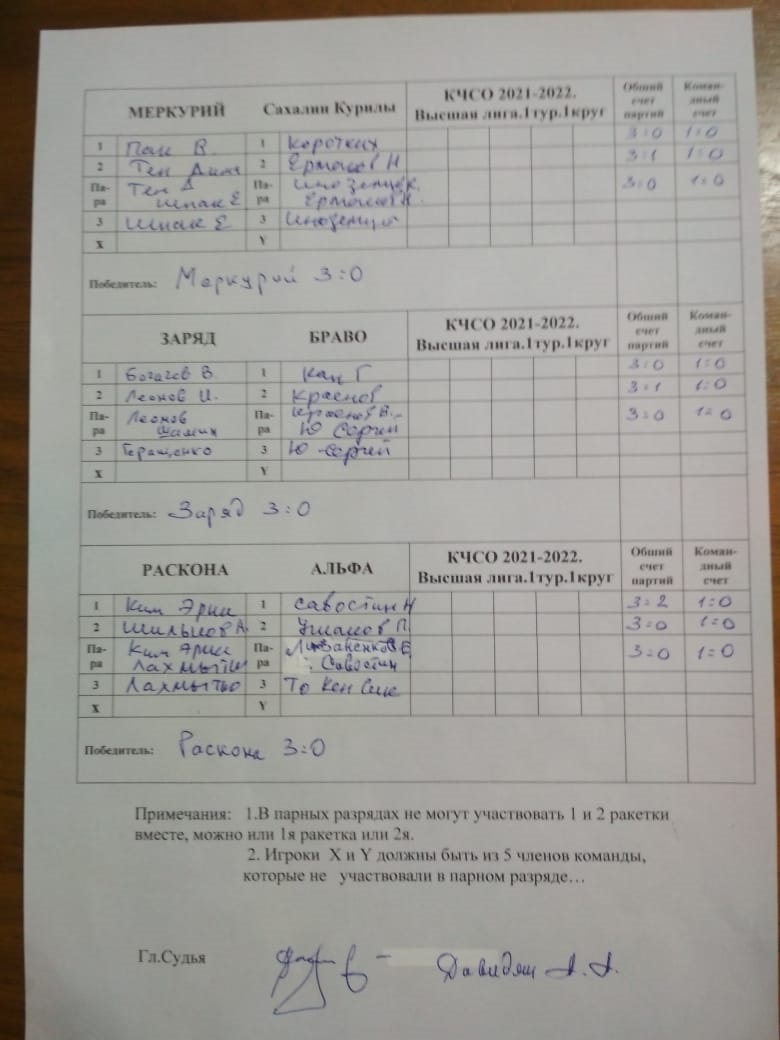 МЕРКУРИЙ Сахалин Курилы КЧСО 2021-2022. Высшая лига.1тур.1круг Общий счет партий Коман-дный счет
1 Пак В. 1 Коротких 3:0 1:0
2 Тен Дима 2 Ермаков Н 3:1 1:0
Па-ра Тен Д Па-ра Иноземцев. 3:0 1:0
Шпак Е Ермаков Н.
3 Шпак Е 3 Иноземцев
X Y
Победитель: Меркурий 3:0
ЗАРЯД БРАВО КЧСО 2021-2022. Высшая лига.1тур.1круг Общий счет партий Коман-дный счет
1 Богачев В. 1 Кан Г 3:0 1:0
2 Леонов И. 2 Краснов 3:1 1:0
Па-ра Леонов Па-ра Краснов В. 3:0 1:0
Шамин Ю Сергей
3 Геращенко 3 Ю Сергей
X Y
Победитель: Заряд 3:0
РАСКОНА АЛЬФА КЧСО 2021-2022. Высшая лига.1тур.1круг Общий счет партий Коман-дный счет
1 Ким Эрни 1 Савостин Н 3:2 1:0
2 А. 2 Ушаков П. 3:0 1:0
Па-ра Ким Эрни Па-ра Е 3:0 1:0
Савостин
3 Лахмытко 3 То Кен Сик
X Y
Победитель: Раскона 3:0
Примечания: 1.В парных разрядах не могут участвовать 1 и 2 ракетки
вместе, можно или 1я ракетка или 2я.
2. Игроки X и Y должны быть из 5 членов команды,
которые не участвовали в парном разряде…
Гл.Судья Давидян А. А.